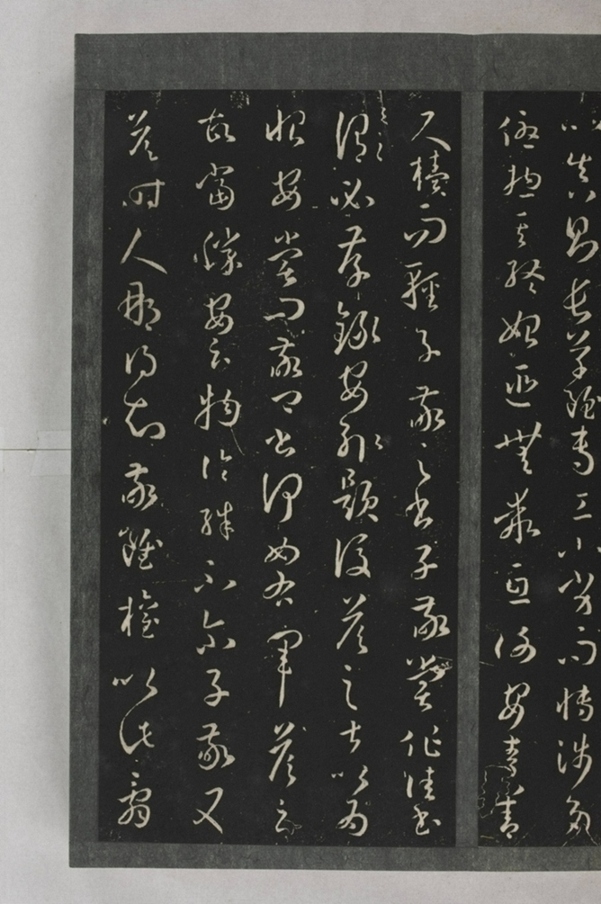 比真則長草雖專工小劣而博涉多
優揔其終始匪無乖互謝安素善
尺牘而輕子敬之書子敬嘗作佳書
與之謂必存錄安輒題後答之甚以為
恨安嘗問敬卿書何如右軍答云
故當勝安云物論殊不爾子敬又
答時人那得知敬雖權以此辭